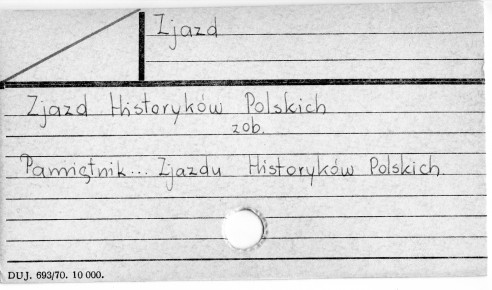 Zjazd
Zjazd Historyków Polskich
zob.
Pamiętnik... Zjazdu Historyków Polskich.
DUJ. 693/70. 10 000.